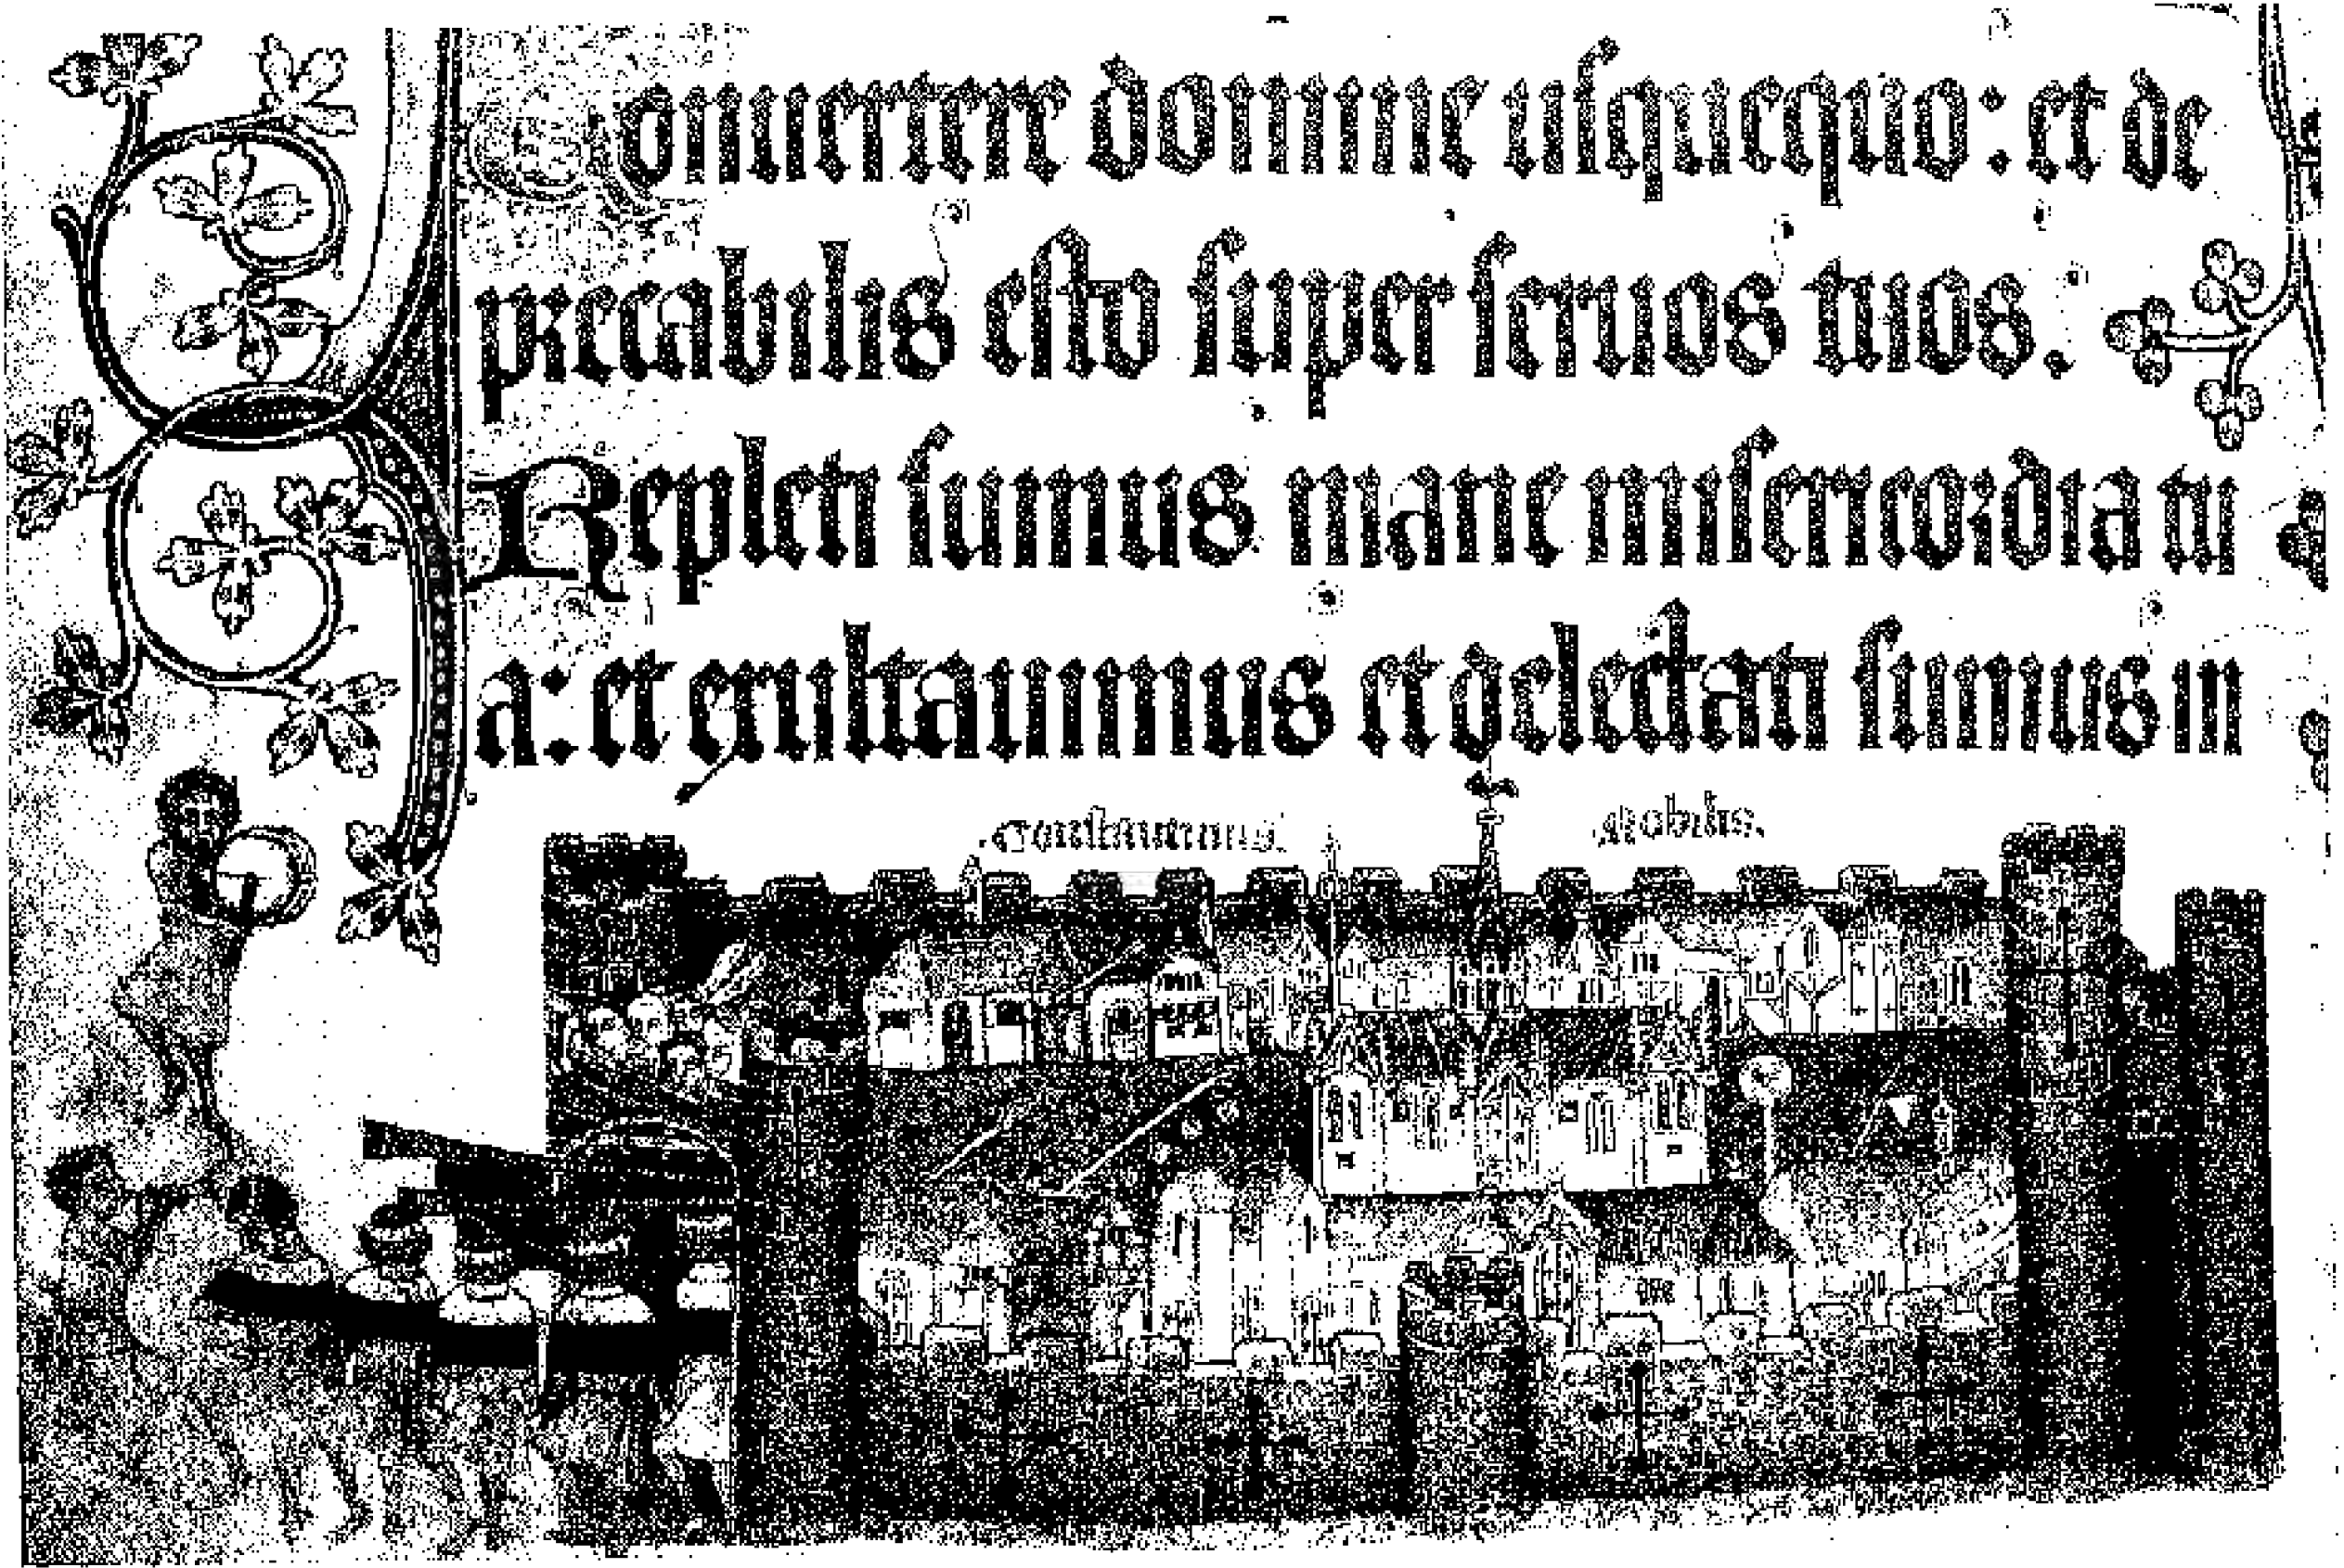 Conuertere domine usquequo: et de
precabilis esto super seruos tuos.
Repleti sumus mane misericordia tu
a: et exultauimus et delectati sumus in
.Constantinus. Nobilis.